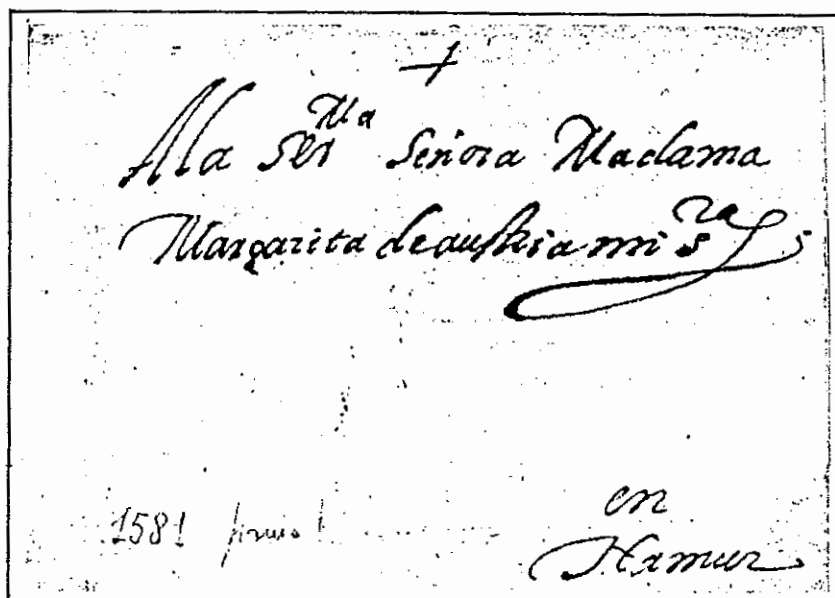 +
Ala ser^ma Señora Madama
Margarita de austria mi s^ra
en
Namur
1581